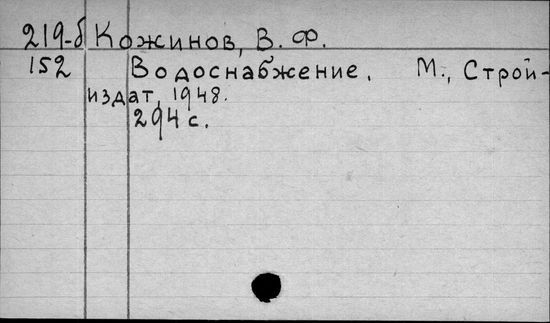 219-б Кожинов, В. Ф.
152 Водоснабжение. М., Строй-
издат, 1948.
294 с.